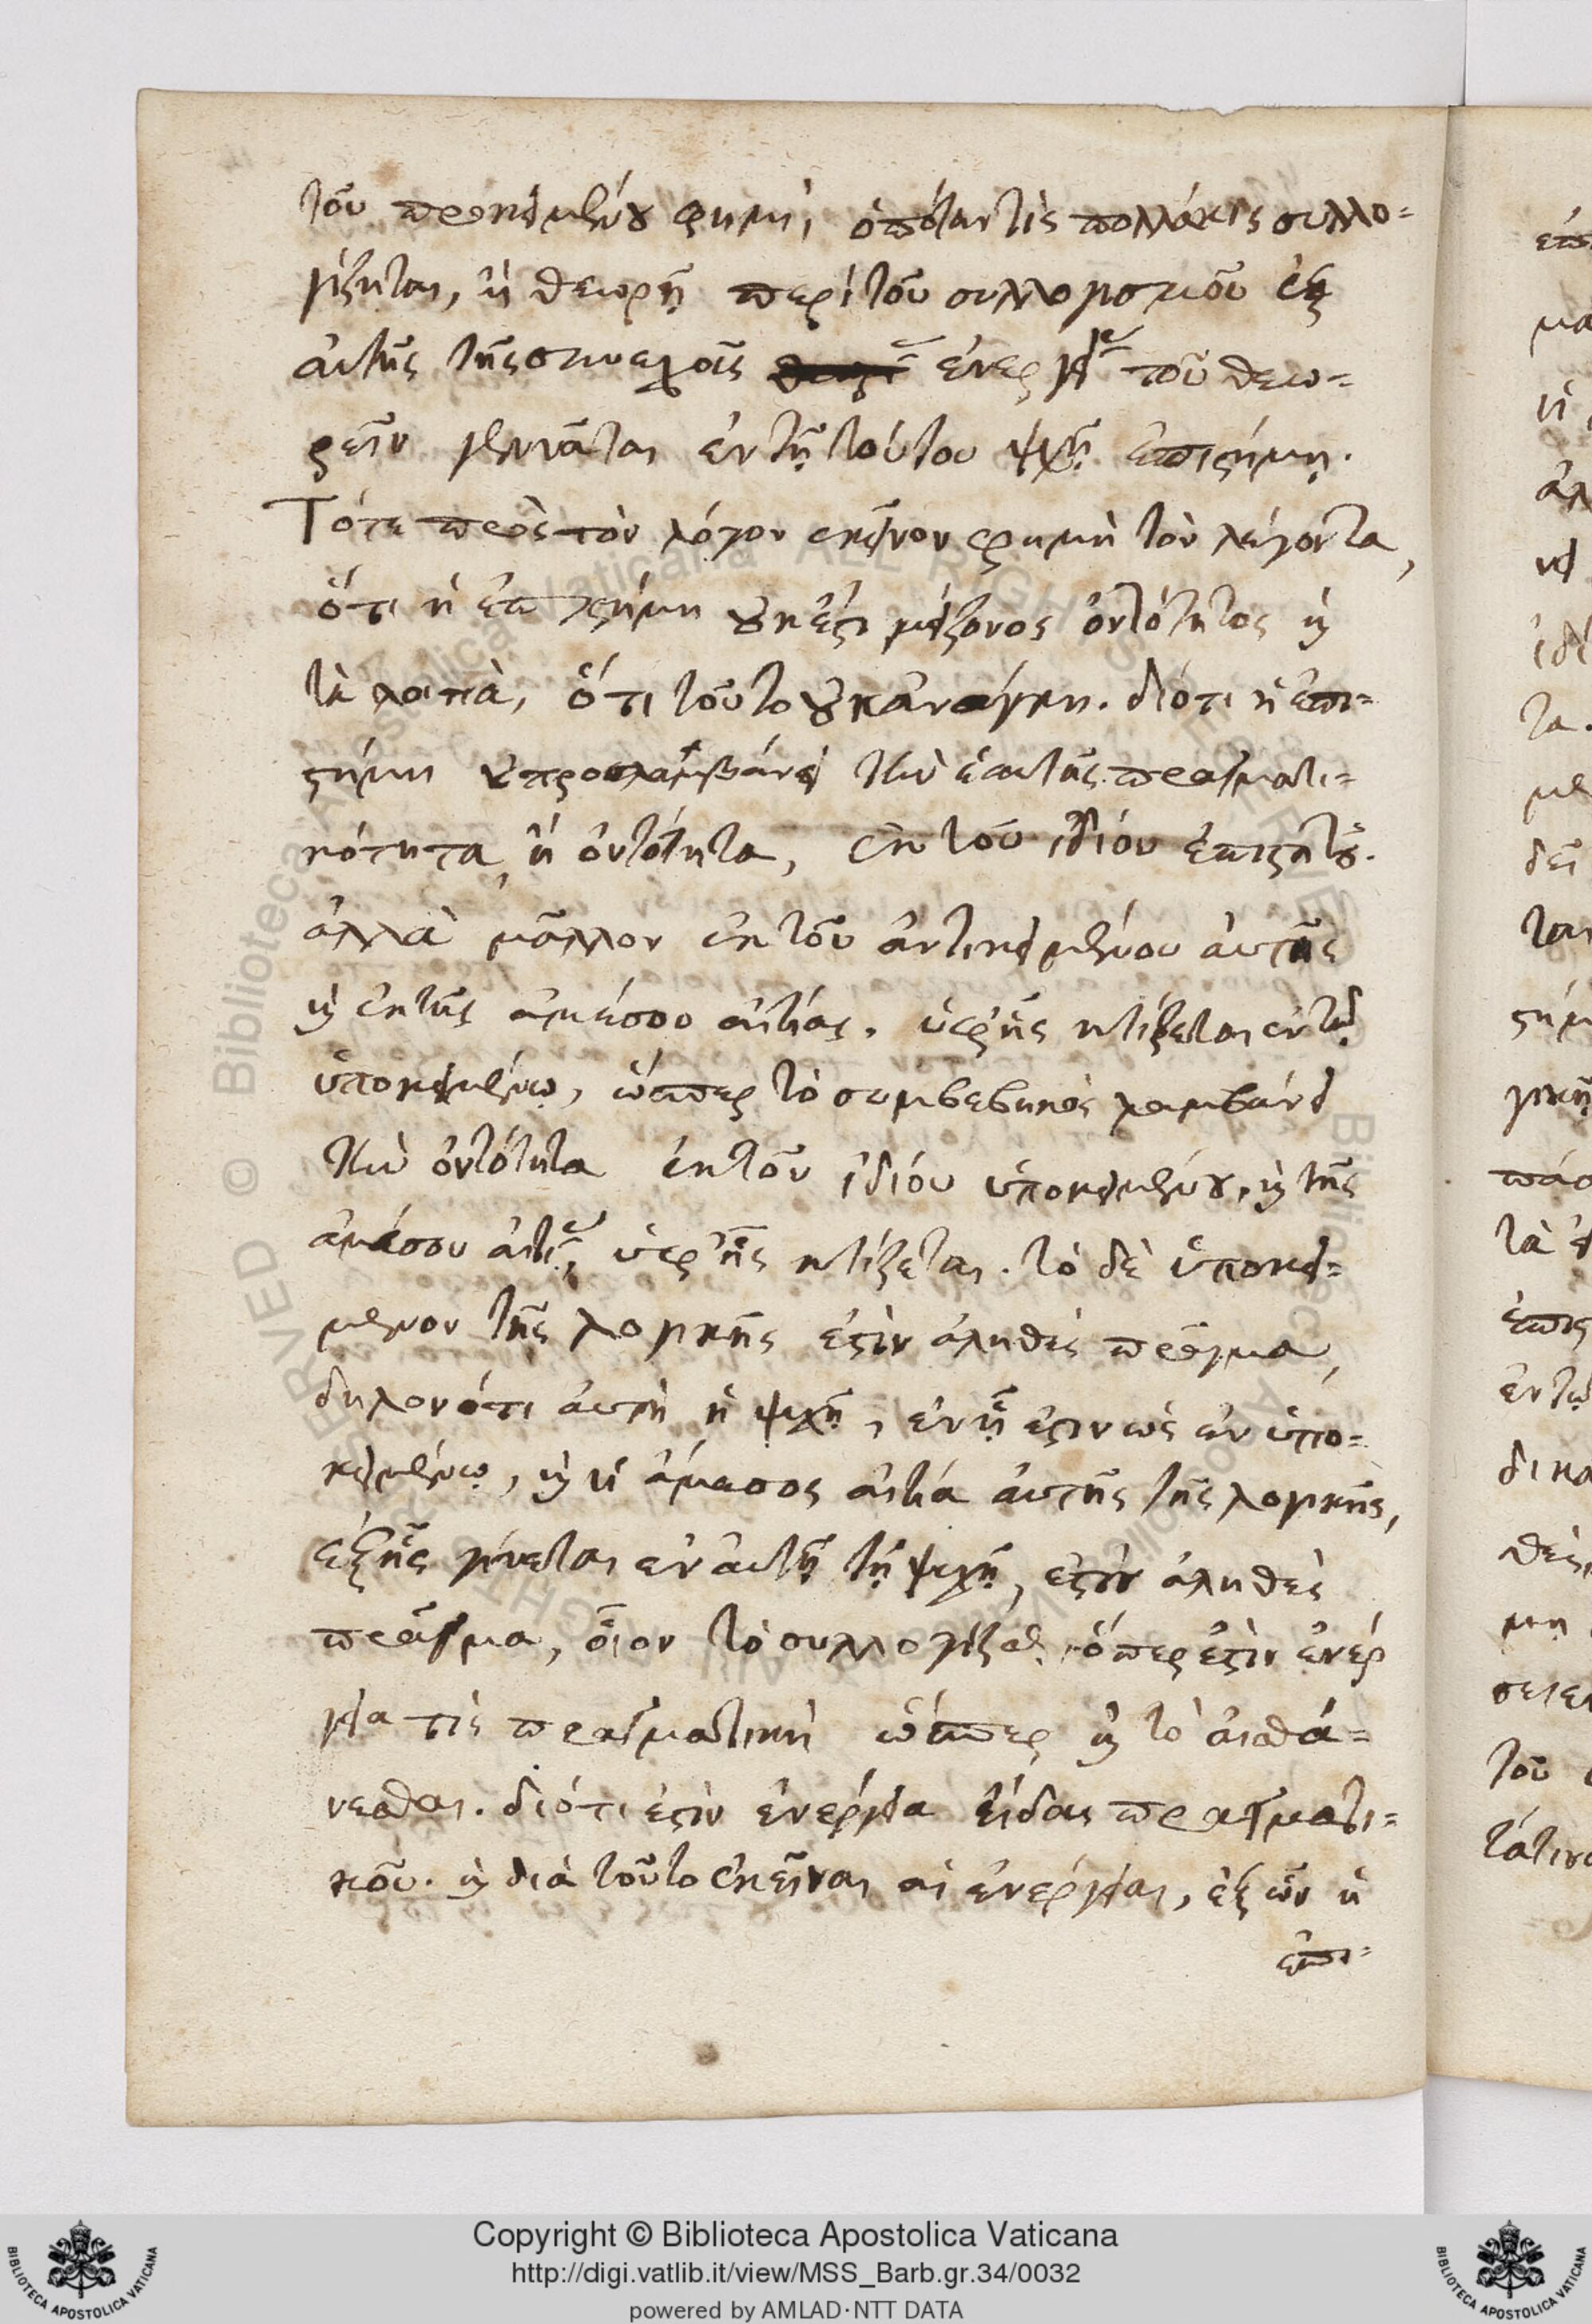 τοῦ προκειμένου φημὶ, ὁπόταν τὶς πολλάκις συλλο=
γίζηται, ἢ θεωρῇ περὶ τοῦ συλλογισμοῦ ἐξ
αὐτῆς τῆς συνεχοῦς ἐνεργείας τοῦ θεω=
ρεῖν γεννᾶται ἐν τῇ τούτου ψυχῇ ἐπιστήμη.
Τότε πρὸς τὸν λόγον ἐκεῖνον φημὶ τὸν λέγοντα,
ὅτι ἡ ἐπιστήμη οὐκ ἔστι μείζονος ὀντότητος καὶ
τὰ λοιπὰ, ὅτι τοῦτο οὐκ ἀνάγκη. διότι ἡ ἐπι=
στήμη οὐ προσλαμβάνει τὴν ἑαυτῆς πραγματι=
κότητα, ἢ ὀντότητα, ἐκ τοῦ ἰδίου ἐπιστητοῦ.
ἀλλὰ μᾶλλον ἐκ τοῦ ἀντικειμένου αὐτῆς
καὶ ἐκ τῆς ἀμέσου αἰτίας. ὑφ' ἧς κτίζεται ἐν τῷ
ὑποκειμένῳ, ὥσπερ τὸ συμβεβηκὸς λαμβάνει
τὴν ὀντότητα ἐκ τοῦ ἰδίου ὑποκειμένου, καὶ τῆς
ἀμέσου αἰτίας, ὑφ' ἧς κτίζεται. τὸ δὲ ὑποκεί=
μενον τῆς λογικῆς ἐστὶν ἀληθὲς πρᾶγμα,
δηλονότι αὐτὴ ἡ ψυχὴ, ἐν ᾗ ἐστιν ὡς ἐν ὑπο=
κειμένῳ, καὶ ἡ ἄμεσος αἰτία αὐτῆς τῆς λογικῆς,
ἐξ ἧς γίνεται ἐν αὐτῇ τῇ ψυχῇ, ἐστὶν ἀληθὲς
πρᾶγμα, οἷον τὸ συλλογίζεσθαι, ὅπερ ἐστὶν ἐνέρ
γεια τὶς πραγματικὴ ὥσπερ καὶ τὸ αἰσθά=
νεσθαι. διότι ἐστὶν ἐνέργεια εἴδους πραγματι=
κοῦ. καὶ διὰ τοῦτο ἐκεῖναι αἱ ἐνέργειαι, ἐξ ὧν ἡ
ἐπι=
Copyright © Biblioteca Apostolica Vaticana
http://digi.vatlib.it/view/MSS_Barb.gr.34/0032
powered by AMLAD·NTT DATA